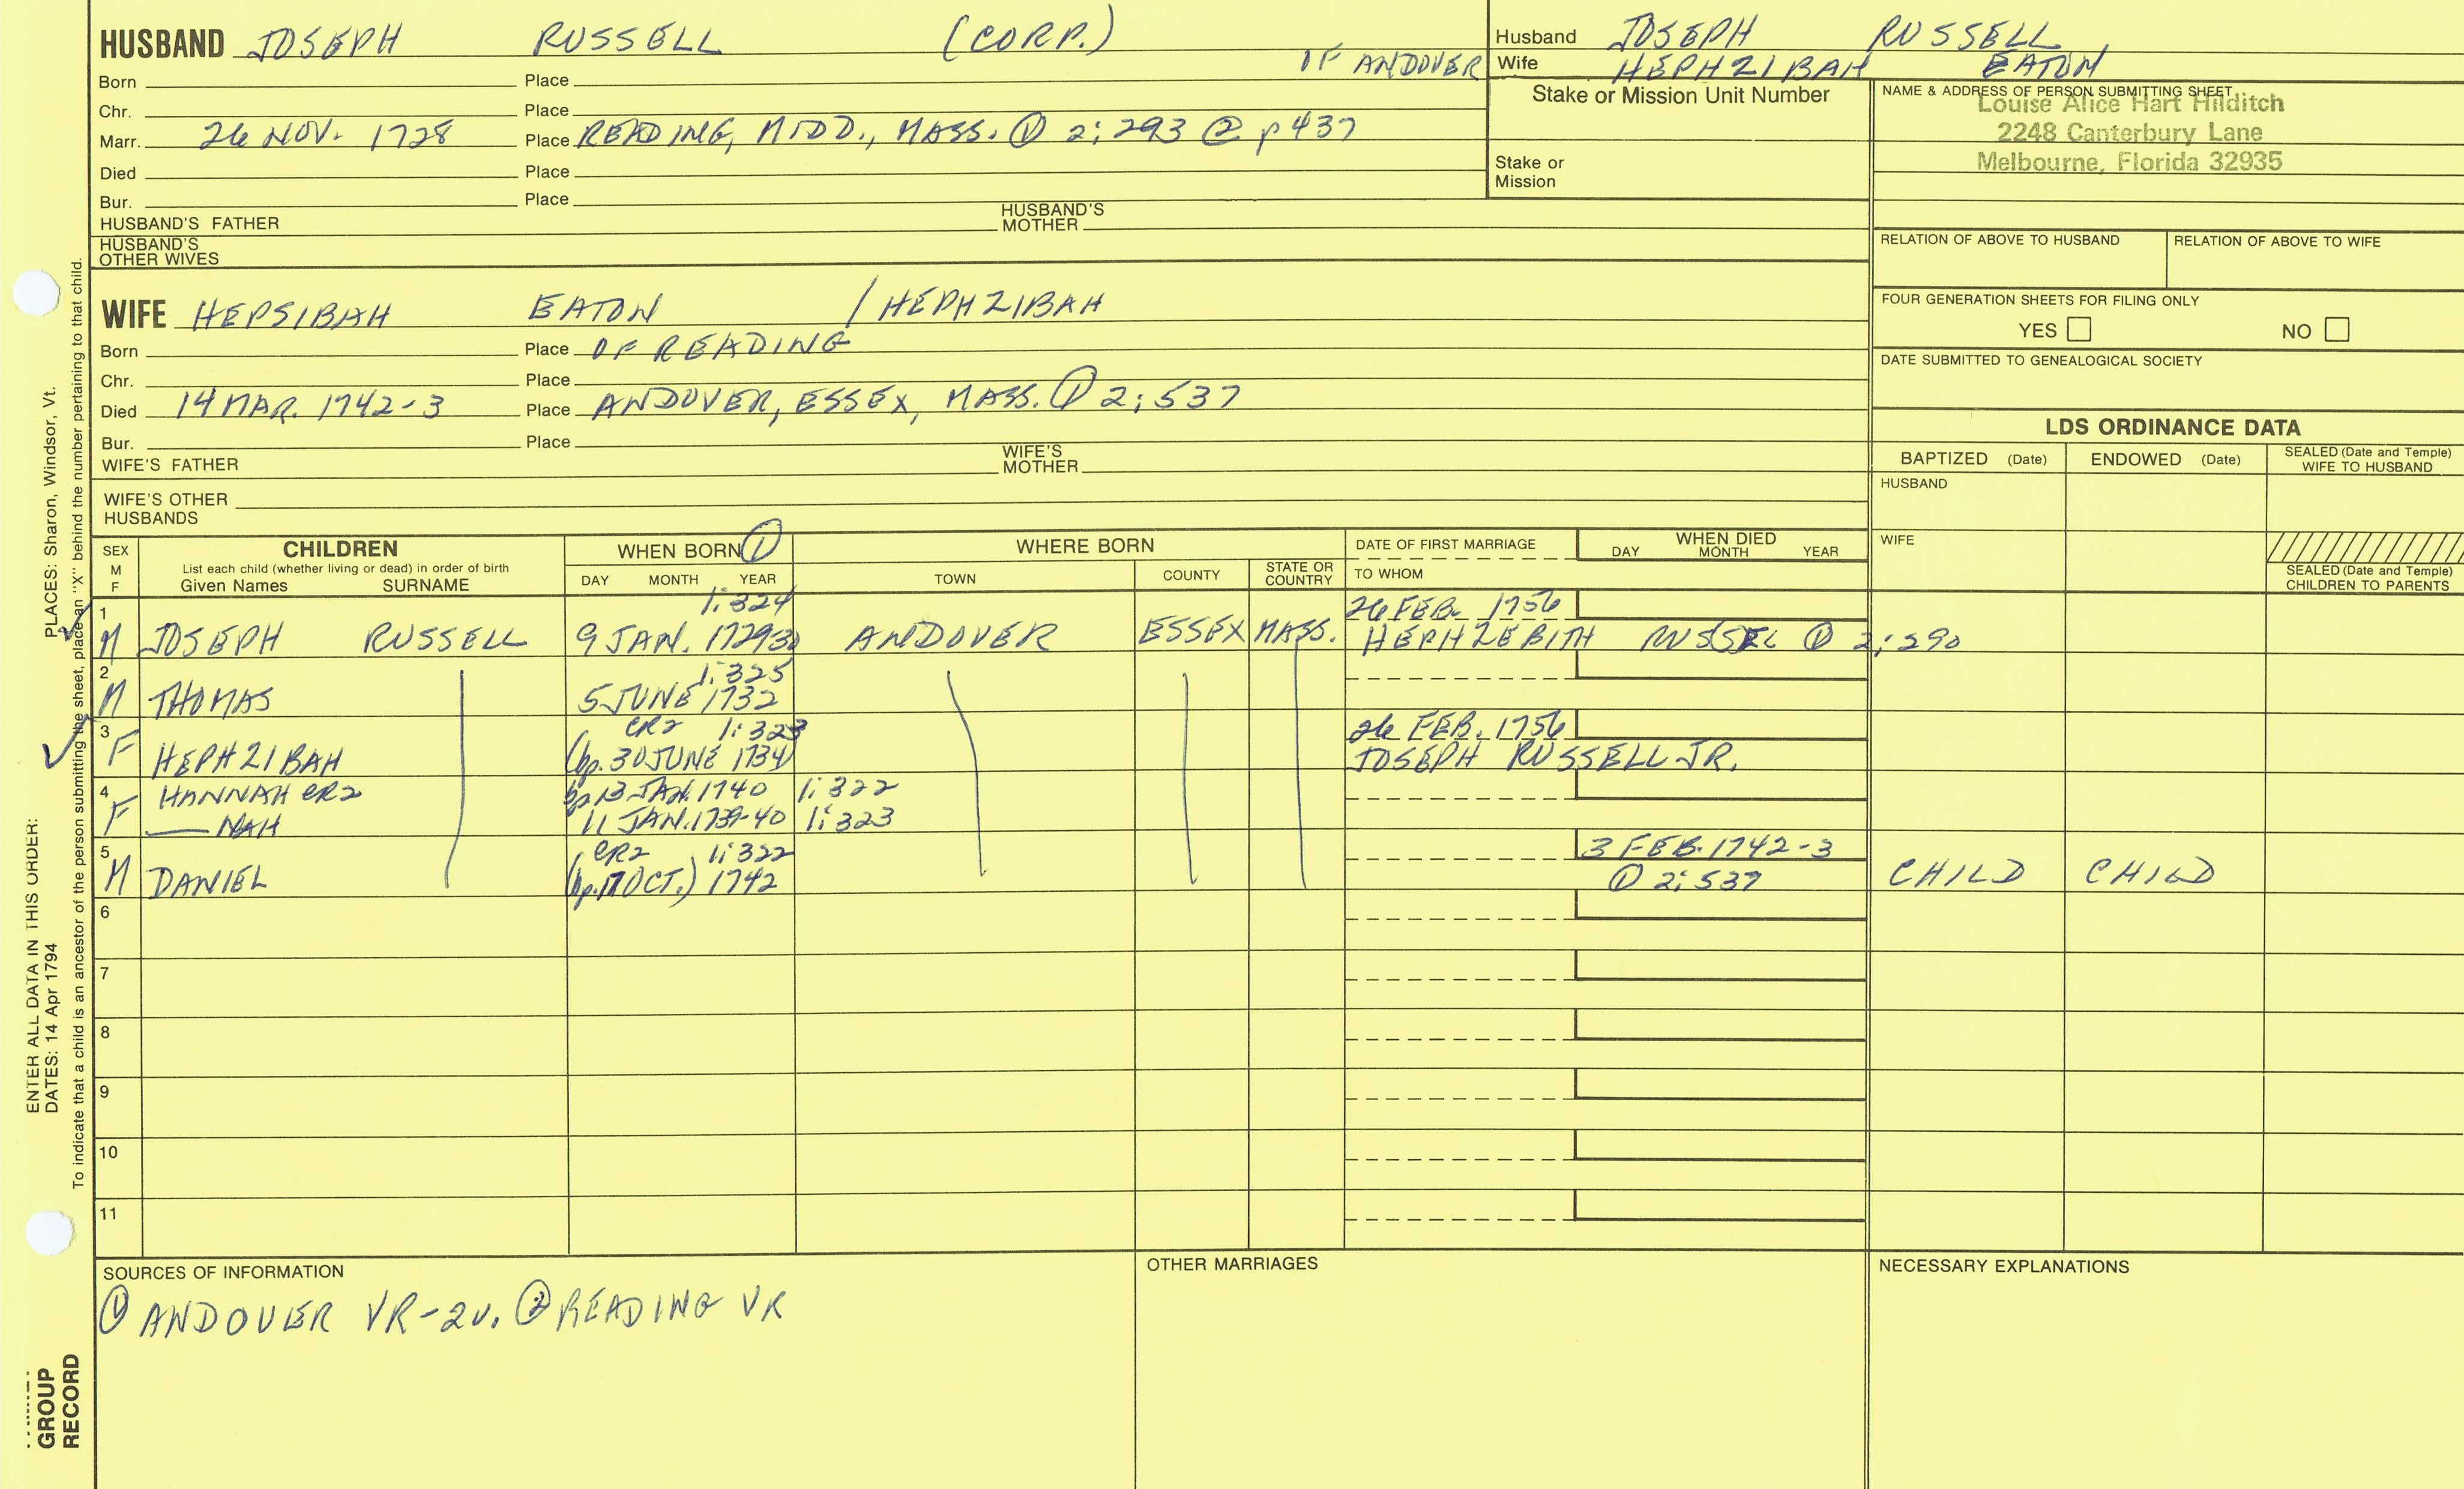 HUSBAND JOSEPH RUSSELL (CORP.) OF ANDOVER
Born Place
Chr. Place
Marr. 26 NOV. 1728 Place READING, MIDD., MASS. ① 2:293 ② p 437
Died Place
Bur. Place
HUSBAND'S FATHER HUSBAND'S MOTHER
HUSBAND'S OTHER WIVES
Husband JOSEPH RUSSELL
Wife HEPHZIBAH EATON
Stake or Mission Unit Number
Stake or Mission
NAME & ADDRESS OF PERSON SUBMITTING SHEET
Louise Alice Hart Hilditch
2248 Canterbury Lane
Melbourne, Florida 32935
RELATION OF ABOVE TO HUSBAND RELATION OF ABOVE TO WIFE
FOUR GENERATION SHEETS FOR FILING ONLY
YES NO
DATE SUBMITTED TO GENEALOGICAL SOCIETY
WIFE HEPSIBAH EATON / HEPHZIBAH
Born Place OF READING
Chr. Place
Died 14 MAR. 1742-3 Place ANDOVER, ESSEX, MASS. ① 2:537
Bur. Place
WIFE'S FATHER WIFE'S MOTHER
WIFE'S OTHER HUSBANDS
LDS ORDINANCE DATA
BAPTIZED (Date) ENDOWED (Date) SEALED (Date and Temple) WIFE TO HUSBAND
HUSBAND
WIFE
SEALED (Date and Temple) CHILDREN TO PARENTS
SEX M F
CHILDREN
List each child (whether living or dead) in order of birth
Given Names SURNAME
WHEN BORN ①
DAY MONTH YEAR
WHERE BORN
TOWN COUNTY STATE OR COUNTRY
DATE OF FIRST MARRIAGE
TO WHOM
WHEN DIED
DAY MONTH YEAR
1 1:324 26 FEB. 1756
M JOSEPH RUSSELL 9 JAN. 172930 ANDOVER ESSEX MASS. HEPHZEBITH RUSSEL ① 2:290
2 1:325
M THOMAS 5 JUNE 1732
3 CR2 1:323 26 FEB. 1756
F HEPHZIBAH (bp. 30 JUNE 1734) JOSEPH RUSSELL JR.
4 HANNAH CR2 bp 13 JAN. 1740 1:322
F —— NAH 11 JAN. 1739-40 1:323
5 CR2 1:322 3 FEB. 1742-3
M DANIEL (bp. 17 OCT.) 1742 ① 2:537 CHILD CHILD
6
7
8
9
10
11
SOURCES OF INFORMATION
① ANDOVER VR-2v. ② READING VR
OTHER MARRIAGES
NECESSARY EXPLANATIONS
PLACES: Sharon, Windsor, Vt.
To indicate that a child is an ancestor of the person submitting the sheet, place an "X" behind the number pertaining to that child.
ENTER ALL DATA IN THIS ORDER:
DATES: 14 Apr 1794
GROUP
RECORD